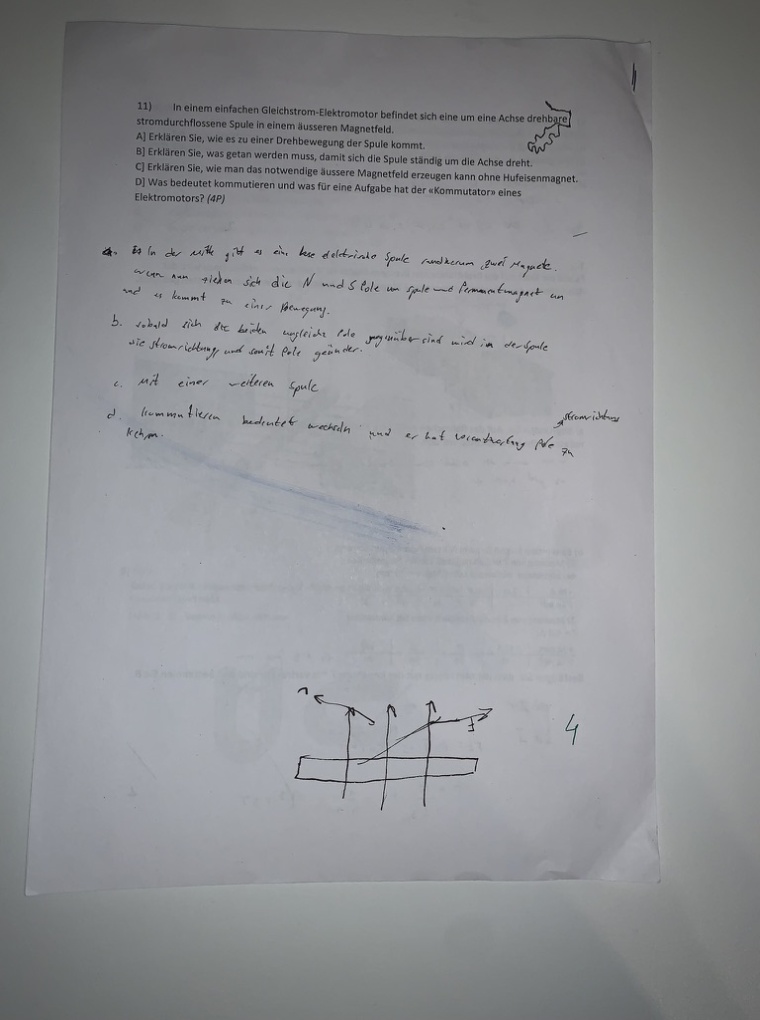 11) In einem einfachen Gleichstrom-Elektromotor befindet sich eine um eine Achse drehbare
stromdurchflossene Spule in einem äusseren Magnetfeld.
A] Erklären Sie, wie es zu einer Drehbewegung der Spule kommt.
B] Erklären Sie, was getan werden muss, damit sich die Spule ständig um die Achse dreht.
C] Erklären Sie, wie man das notwendige äussere Magnetfeld erzeugen kann ohne Hufeisenmagnet.
D] Was bedeutet kommutieren und was für eine Aufgabe hat der «Kommutator» eines
Elektromotors? (4P)
a. In der Mitte gibt es eine elektrische Spule rundherum zwei Magnete.
wenn nun ziehen sich die N und S Pole von Spule und Permanentmagnet an
und es kommt zu einer Bewegung.
b. sobald sich die beiden ungleiche Pole gegenüber sind wird in der Spule
die Stromrichtung, und somit Pole geändert.
c. Mit einer weiteren Spule
stromrichtung
d. kommutieren bedeutet wechseln und er hat Pole zu
kehren.
F
4